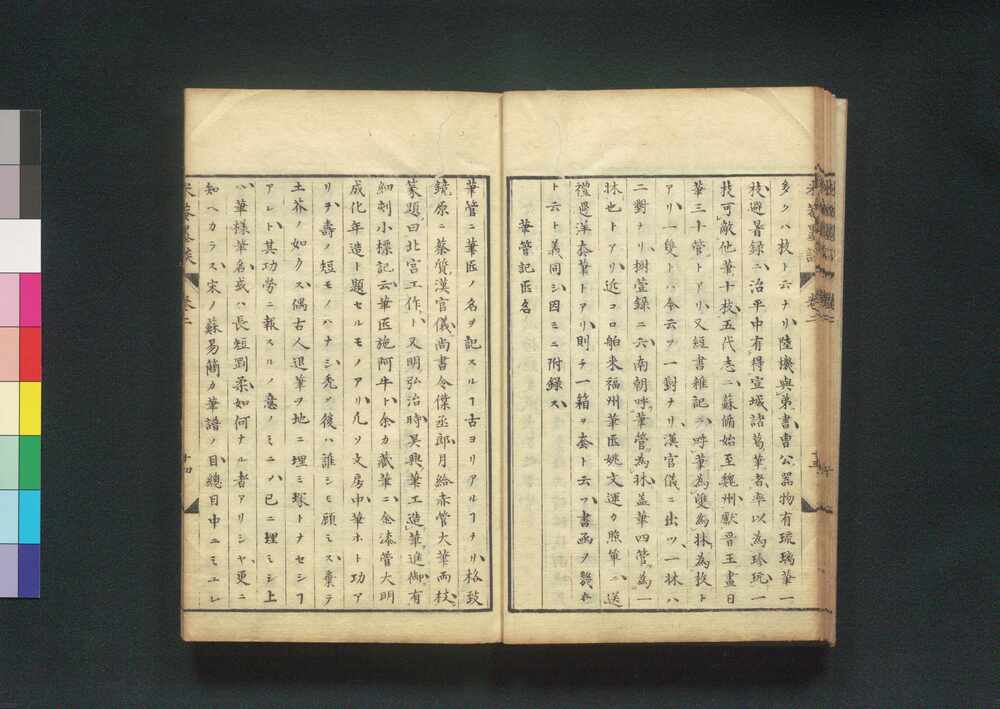 多クハ枚ト云ナリ陸機與弟書曹公器物有琉璃筆一
枝避暑録ニ治平中有得宣城諸葛筆者率以為珍玩一
枝可敵他筆十枝五代志ニ蘇循始至魏州獻晋王畫日
筆三十管トアリ又經書雜記ニ呼筆為雙為牀為枚ト
アリ一雙トハ今云フ一對ナリ漢官儀ニ出ツ一牀ハ
二對ナリ樹萱録ニ云南朝呼筆管為牀蓋筆四管為一
牀也トアリ近コロ舶來福州筆匠姚文運カ照單ニ送
禮選洋套筆トアリ則チ一箱ヲ套ト云フ書画ヲ幾套
ト云ト義同シ因ミニ附録ス
筆管記匠名
筆管ニ筆匠ノ名ヲ記スルヿ古ヨリアルヿナリ格致
鏡原ニ蔡質漢官儀尚書令僕丞郎月給赤管大筆兩枝
篆題曰北宮工作ト又明弘治時呉興筆工造筆進御有
細刻小標記云筆匠施阿牛ト余カ藏筆ニ金漆管大明
成化年造ト題セルモノアリ凡ソ文房中筆ホト功ア
リヲ壽ノ短モノハナシ禿タ後ハ誰シモ顧ミス棄テ
土芥ノ如クス偶古人退筆ヲ地ニ埋ミ塚トナセシヿ
アレト其功勞ニ報スルノ意ノミニハ已ニ埋ミシ上
ハ筆様筆名或ハ長短剛柔如何ナル者アリシヤ更ニ
知ヘカラス宋ノ蘇易簡カ筆譜ノ目總目中ニミエレ
米菴墨談 卷二
十四